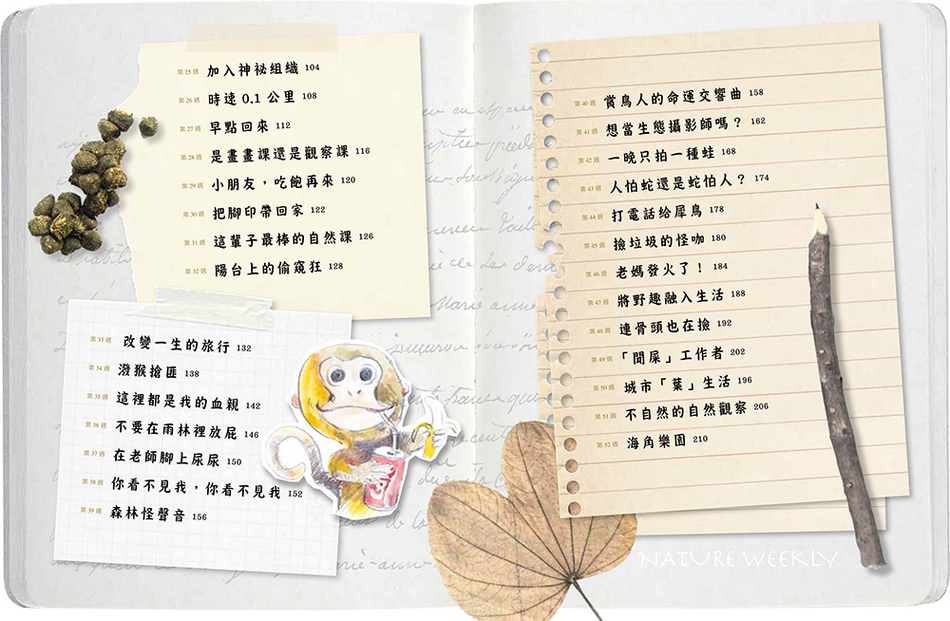 第25週 加入神祕組織 104
第26週 時速 0.1 公里 108
第27週 早點回來 112
第28週 是畫畫課還是觀察課 116
第29週 小朋友，吃飽再來 120
第30週 把腳印帶回家 122
第31週 這輩子最棒的自然課 126
第32週 陽台上的偷窺狂 128
第33週 改變一生的旅行 132
第34週 潑猴搶匪 138
第35週 這裡都是我的血親 142
第36週 不要在雨林裡放屁 146
第37週 在老師腳上尿尿 150
第38週 你看不見我，你看不見我 152
第39週 森林怪聲音 156
第40週 賞鳥人的命運交響曲 158
第41週 想當生態攝影師嗎？ 162
第42週 一晚只拍一種蛙 168
第43週 人怕蛇還是蛇怕人？ 174
第44週 打電話給犀鳥 178
第45週 撿垃圾的怪咖 180
第46週 老媽發火了！ 184
第47週 將野趣融入生活 188
第48週 連骨頭也在撿 192
第49週 「聞屎」工作者 202
第50週 城市「葉」生活 196
第51週 不自然的自然觀察 206
第52週 海角樂園 210
NATURE WEEKLY